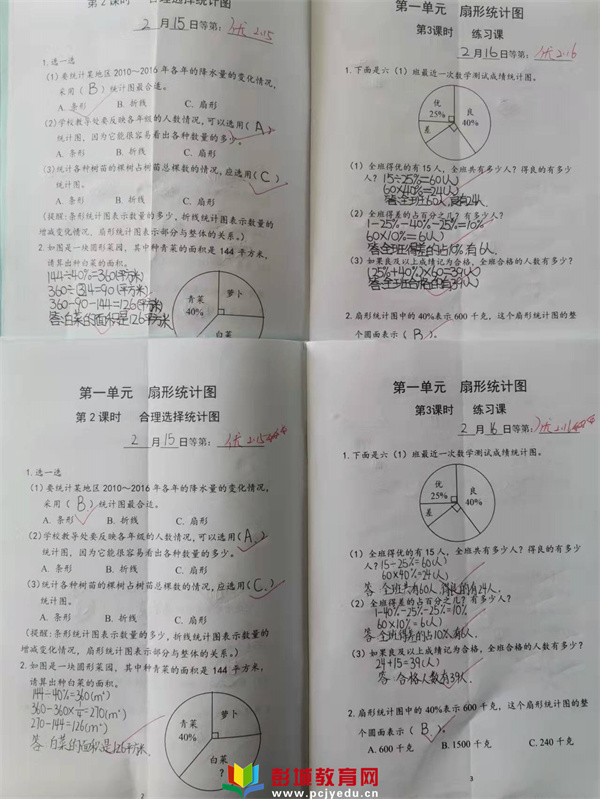 第2课时 合理选择统计图
2月15日等第: 优 2.15
1.选一选
(1)要统计某地区2010～2016年各年的降水量的变化情况,
采用(B)统计图最合适。
A. 条形 B. 折线 C. 扇形
(2)学校教导处要反映各年级的人数情况,可以选用(A)
统计图,因为它能很容易看出各种数量的多少。
A. 条形 B. 折线 C. 扇形
(3)统计各种树苗的棵树占树苗总棵数的情况,应选用(C)
统计图。
A. 条形 B. 折线 C. 扇形
(提醒:条形统计图表示数量的多少,折线统计图表示数量的
增减变化情况,扇形统计图表示部分与整体的关系。)
2.如图是一块圆形菜园,其中种青菜的面积是144平方米,
请算出种白菜的面积。
144÷40%=360(平方米)
360÷4=90(平方米)
360-90-144=126(平方米)
答:白菜的面积是126平方米
青菜
40%
萝卜
白菜
第一单元 扇形统计图
第3课时 练习课
2月16日等第: 优 2.16
1.下面是六(1)班最近一次数学测试成绩统计图。
优
25%
良
40%
差
(1)全班得优的有15人,全班共有多少人?得良的有多少
人?15÷25%=60(人)
60×40%=24(人)
答:全班60人,良有24人.
(2)全班得差的占百分之几?有多少人?
1-25%-40%-25%=10%
60×10%=6(人)
答:全班得差的占10%有6人.
(3)如果良及以上成绩记为合格,全班合格的人数有多少?
(25%+40%)×60=39(人)
答:全班合格的有39人
2.扇形统计图中的40%表示600千克,这个扇形统计图的整
个圆面表示(B)。
第一单元 扇形统计图
第2课时 合理选择统计图
2月15日等第: 优 2.15
1.选一选
(1)要统计某地区2010～2016年各年的降水量的变化情况,
采用(B)统计图最合适。
A. 条形 B. 折线 C. 扇形
(2)学校教导处要反映各年级的人数情况,可以选用(A)
统计图,因为它能很容易看出各种数量的多少。
A. 条形 B. 折线 C. 扇形
(3)统计各种树苗的棵树占树苗总棵数的情况,应选用(C)
统计图。
A. 条形 B. 折线 C. 扇形
(提醒:条形统计图表示数量的多少,折线统计图表示数量的
增减变化情况,扇形统计图表示部分与整体的关系。)
2.如图是一块圆形菜园,其中种青菜的面积是144平方米,
请算出种白菜的面积。
144÷40%=360(m²)
360-360×1/4=270(m²)
270-144=126(m²)
答:白菜的面积是126平方米.
青菜
40%
萝卜
白菜
?
2
第一单元 扇形统计图
第3课时 练习课
2月16日等第: 优 2.16
1.下面是六(1)班最近一次数学测试成绩统计图。
优
25%
良
40%
差
(1)全班得优的有15人,全班共有多少人?得良的有多少
人?15÷25%=60(人)
60×40%=24(人)
答:全班共有60人,得良的有24人.
(2)全班得差的占百分之几?有多少人?
1-40%-25%-25%=10%
60×10%=6(人)
答:全班得差的占10%有6人.
(3)如果良及以上成绩记为合格,全班合格的人数有多少?
24+15=39(人)
答:合格人数有39人.
2.扇形统计图中的40%表示600千克,这个扇形统计图的整
个圆面表示(B)。
A. 600千克 B. 1500千克 C. 240千克
3
彭城教育网
www.pcjyedu.cn